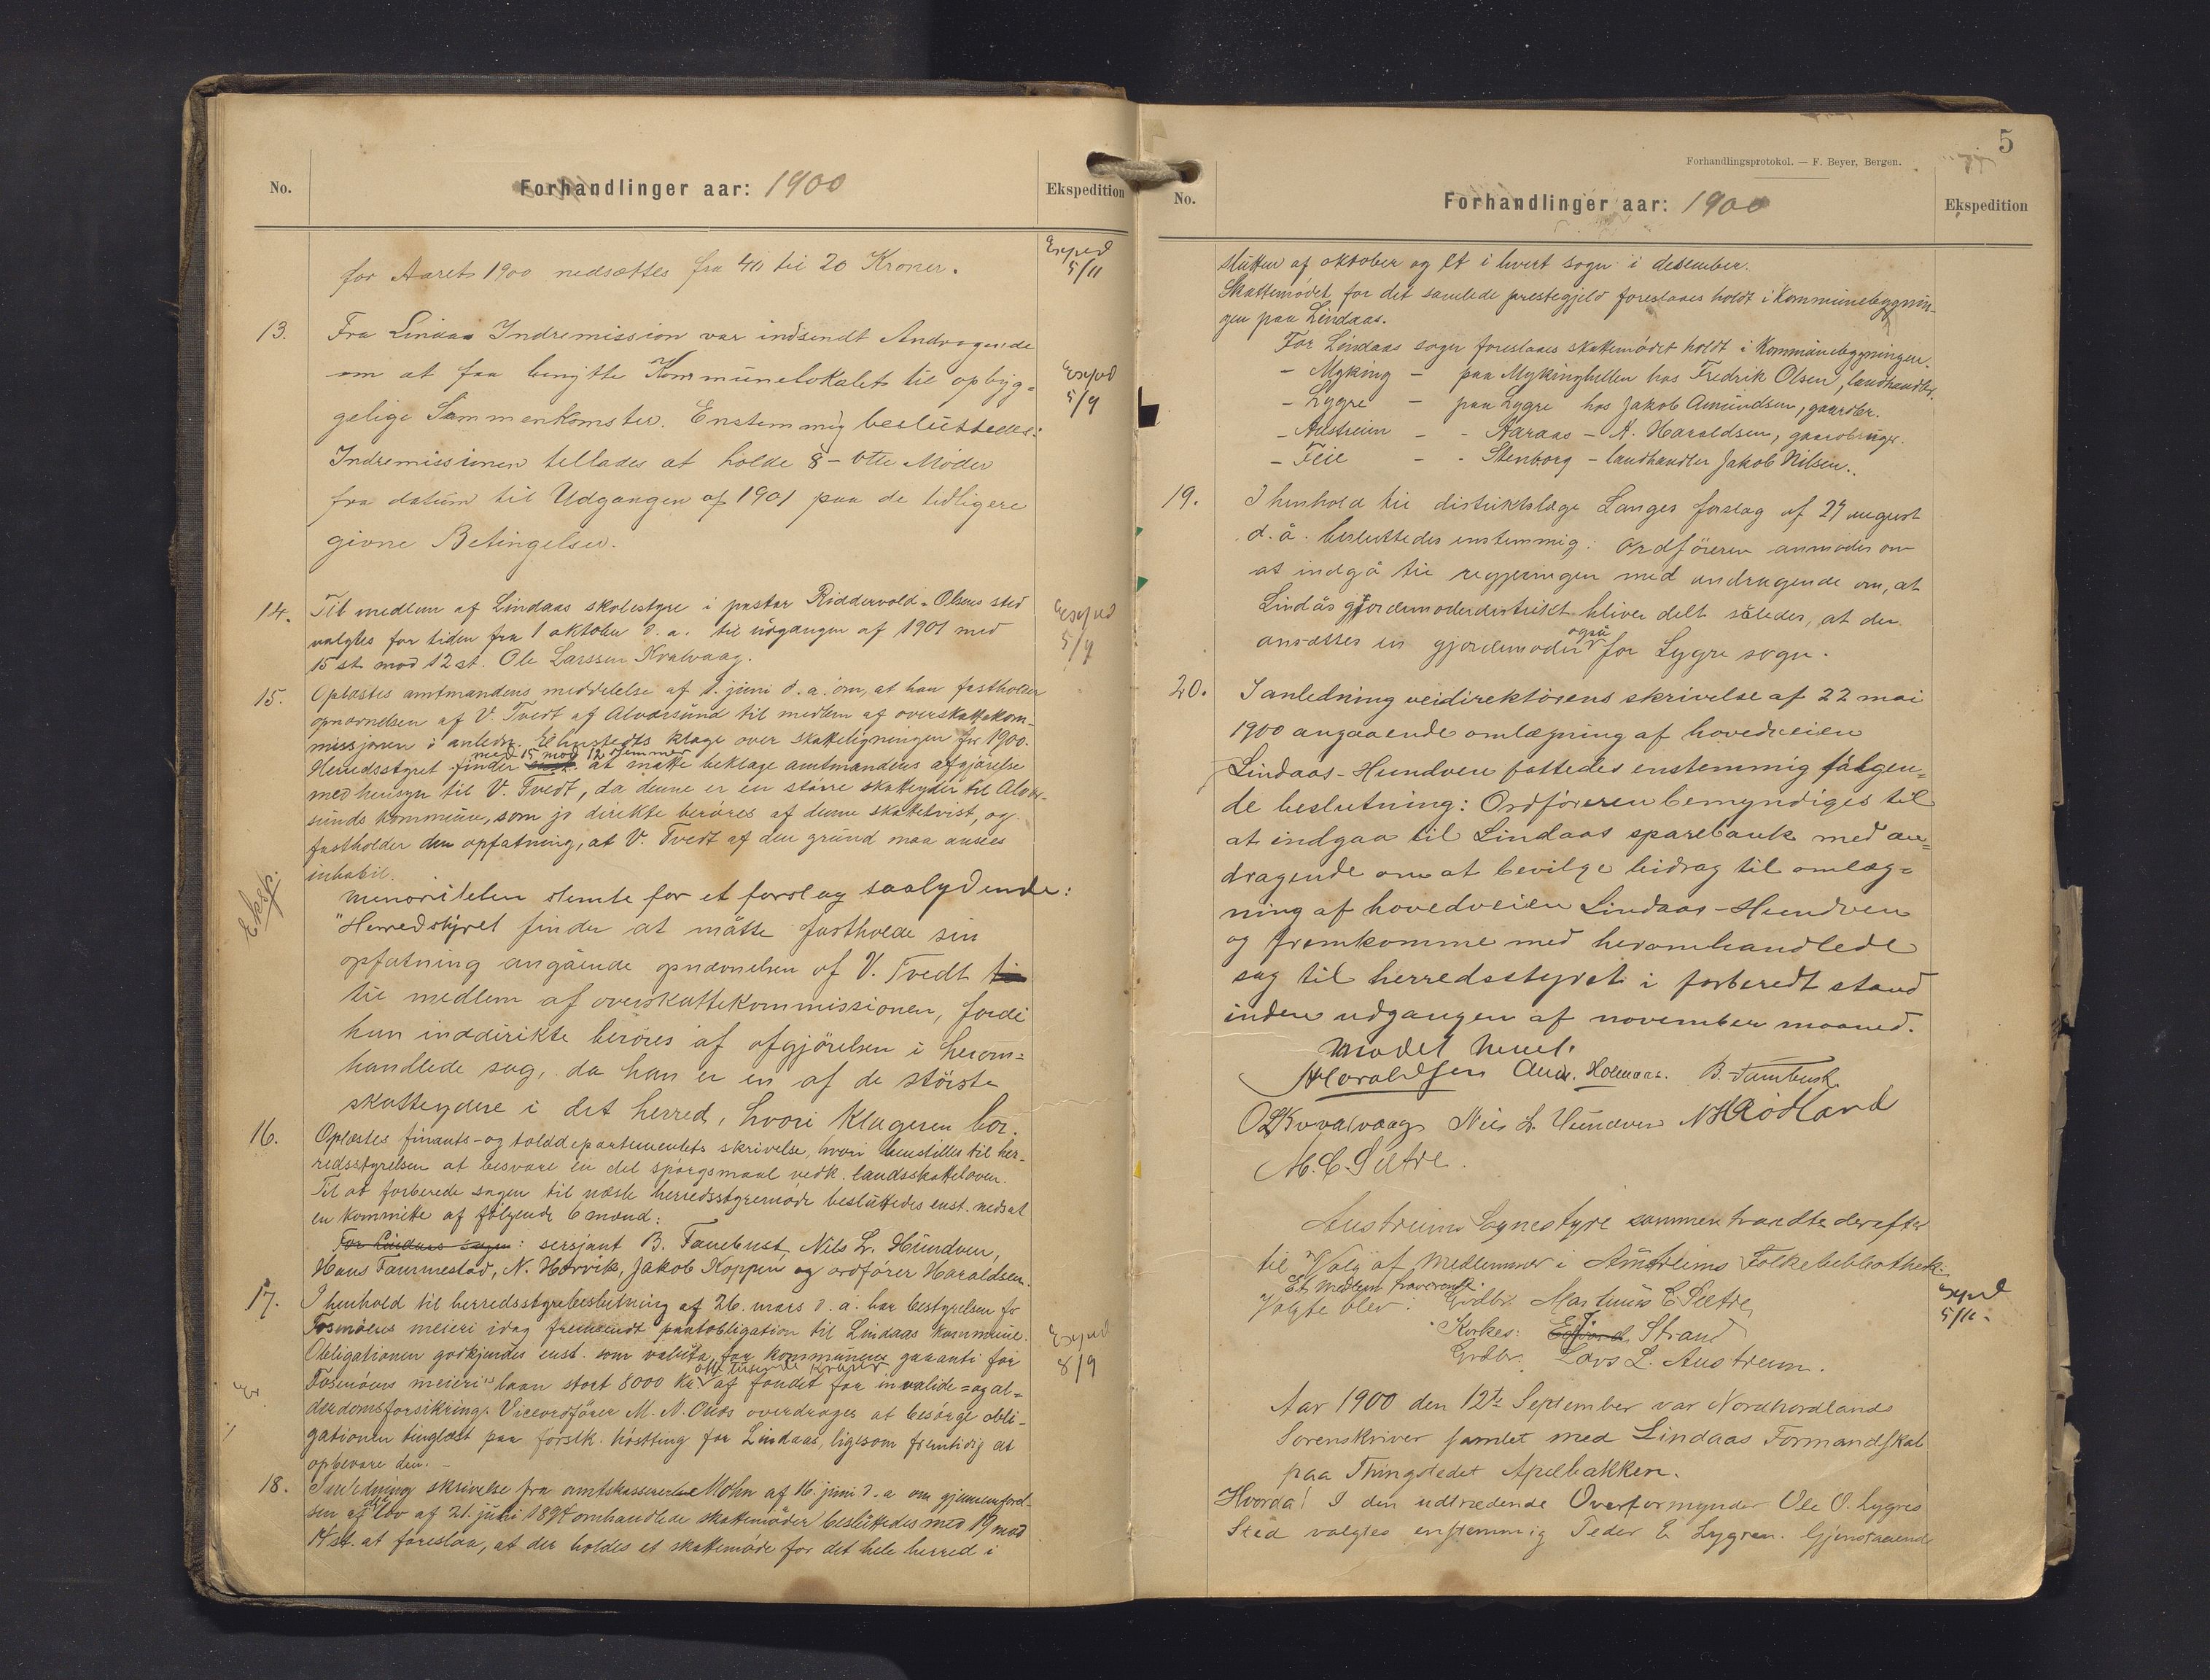 No.
Forhandlinger aar: 1900
Ekspedition
for Aaret 1900 nedsættes fra 40 til 20 Kroner.
Exped
5/11
13.
Fra Lindaas Indremission var indsendt Andragende
om at faa benytte Kommunelokalet til opbyg=
gelige Sammenkomster. Enstemmig besluttedes:
Indremissionen tillades at holde 8 – otte Møder
fra datum til Udgangen af 1901 paa de tidligere
givne Betingelser.
Exped
5/9
14.
Til medlem af Lindaas skolestyre i pastor Riddervold-Olsens sted
valgtes for tiden fra 1 oktober d. a. til udgangen af 1901 med
15 st. mod 12 st. Ole Larssen Kvalvaag.
Exped
5/9
15.
Oplæstes amtmandens meddelelse af 1. juni d. a. om, at han fastholder
opnævnelsen af V. Tvedt af Alversund til medlem af overskattekom-
missjonen i anledn. klage over skatteligningen for 1900.
med 15 mod 12 stemmer
Herredsstyret finder at maatte beklage amtmandens afgjørelse
med hensyn til V. Tvedt, da denne er en større skatteyder til Alver-
sunds kommune, som jo direkte berøres af denne skattetvist, og
fastholder den opfatning, at V. Tvedt af den grund maa ansees
inhabil.
Eksp.
Minoriteten stemte for et forslag saalydende:
"Herredstyret finder at måtte fastholde sin
opfatning angående opnævnelsen af V. Tvedt
til medlem af overskattekommissionen, fordi
han inddirikte berøres af afgjörelsen i herom=
handlede sag, da han er en af de störste
skatteydere i det herred, hvori klageren bor.
16.
Oplæstes finants- og tolddepartementets skrivelse, hvori henstilles til her-
redsstyrelsen at besvare en del spørgsmaal vedk. landsskatteloven.
Til at forberede sagen til næste herredsstyremøde besluttedes enst. nedsat
en kommitte af følgende 6 mænd:
For Lindaas sogn: sersjant B. Fanebust, Nils L. Hundven,
Hans Fammestad, N. Hørvik, Jakob Koppen og ordfører Haraldsen.
17.
I henhold til herredsstyrebeslutning af 26. mars d. a. har bestyrelsen for
Fosmoens meieri idag fremsendt pantobligation til Lindaas kommune.
Obligationen godkjendes enst. som valuta for kommunens garanti for
otte tusende kroner
Fosmoens meieri's laan stort 8000 kr. af fondet for invalide= og al=
derdomsforsikring. Viceordfører M. N. Onas overdrages at besørge obli-
gationen tinglæst paa førstk. høstting for Lindaas, ligesom fremtidig at
opbevare den. –
Exped
8/9
18.
I anledning skrivelse fra amtskasserer Mohn af 16. juni d. a om gjennemførel-
sen af den lov af 21. juli 1894 omhandlede skattemøder besluttedes med 19 mod
14 st. at foreslaa, at der holdes et skattemøde for det hele herred i
5
Forhandlingsprotokol. — F. Beyer, Bergen.
No.
Forhandlinger aar: 1900
Ekspedition
slutten af oktober og et i hvert sogn i desember.
Skattemødet for det samlede prestegjeld foreslaaes holdt i Kommunebygnin-
gen paa Lindaas.
For Lindaas sogn foreslaaes skattemødet holdt i Kommunebygningen.
– Myking – paa Mykingheller hos Fredrik Olsen, landhandler.
– Lygre – paa Lygre hos Jakob Amundsen, gaardbr.
– Austreim – - Aaraas – A. Haraldsen, gaardbruger.
– Feie – - Stenborg – landhandler Jakob Nilsen.
19.
I henhold til distriktslæge Langes forslag af 27 august
d. å. besluttedes enstemmig: Ordföreren anmodes om
at indgå til regjeringen med andragende om, at
Lindås gjordemoderdistrikt bliver delt således, at der
også
ansættes en gjordemoder for Lygre sogn.
20.
I anledning veidirektörens skrivelse af 22 mai
1900 angaaende omlægning af hovedveien
Lindaas-Hundven fattedes enstemmig fölgen=
de beslutning: Ordföreren bemyndiges til
at indgaa til Lindaas sparebank med an=
dragende om at bevilge bidrag til omlæg=
ning af hovedveien Lindaas-Hundven
og fremkomme med heromhandlede
sag til herredsstyret i forberedt stand
inden udgangen af november maaned.
Mødet hevet.
AHaraldsen And. Holmaas. B. Fanebust
OLKvalvaag Nils L. Hundven NKRödland
M. C. Sætre.
Austreims Sognestyre sammentraadte derefter
til Valg af Medlemmer i Austreims Folkebibliothek.
Et medlem fraværende.
Valgte blev: Grdbr. Martinus C Sætre,
Kirkes: Strand
Grdbr. Lars L. Austreim.
Exped
5/11.
Aar 1900 den 12te September var Nordhordlands
Sorenskriver samlet med Lindaas Formandskab
paa Thingstedet Apelbakken.
Hvorda! I den udtrædende Overformynder Ole O. Lygres
Sted valgtes enstemmig Peder E Lygren. Gjenstaaende